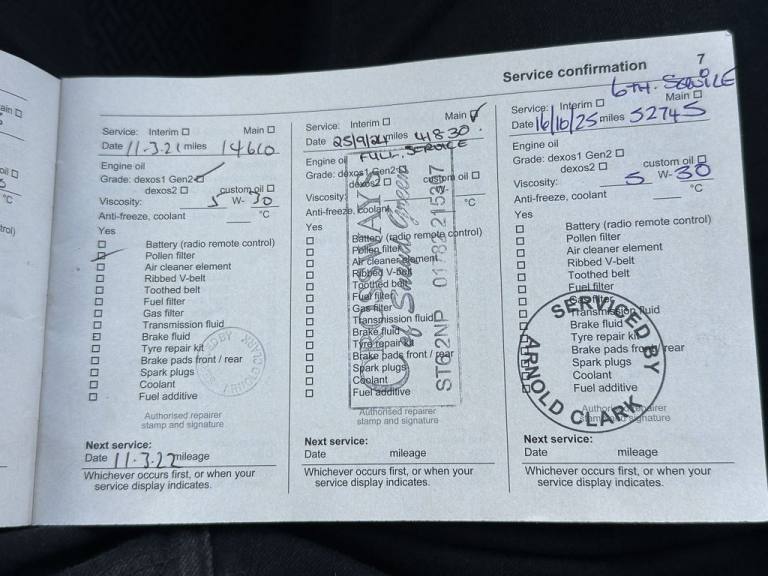 Service confirmation
7
6TH. SERVICE
Service: Interim ☐ Main ☐
Date 11-3.21 miles 14610
Engine oil
Grade: dexos1 Gen2 ☑
dexos2 ☐ custom oil ☐
Viscosity: 5 W- 30
Anti-freeze, coolant °C
Yes
☐ Battery (radio remote control)
☑ Pollen filter
☐ Air cleaner element
☐ Ribbed V-belt
☐ Toothed belt
☐ Fuel filter
☐ Gas filter
☐ Transmission fluid
☐ Brake fluid
☐ Tyre repair kit
☐ Brake pads front / rear
☐ Spark plugs
☐ Coolant
☐ Fuel additive
ARNOLD CLARK
Authorised repairer
stamp and signature
Next service:
Date 11.3.22 mileage
Whichever occurs first, or when your
service display indicates.
Service: Interim ☐ Main ☑
Date 25/9/24 miles 41830.
FULL SERVICE
Engine oil
Grade: dexos1 Gen2 ☐
dexos2 ☐ custom oil ☐
Viscosity: W-
Anti-freeze, coolant °C
Yes
☐ Battery (radio remote control)
☐ Pollen filter
☐ Air cleaner element
☐ Ribbed V-belt
☐ Toothed belt
☐ Fuel filter
☐ Gas filter
☐ Transmission fluid
☐ Brake fluid
☐ Tyre repair kit
☐ Brake pads front / rear
☐ Spark plugs
☐ Coolant
☐ Fuel additive
CROSSWAYS
Green
Authorised repairer
stamp and signature
Next service:
Date mileage
Whichever occurs first, or when your
service display indicates.
Service: Interim ☐ Main ☐
Date 16/10/25 miles 52745
Engine oil
Grade: dexos1 Gen2 ☐
dexos2 ☐ custom oil ☐
Viscosity: 5 W- 30
Anti-freeze, coolant °C
Yes
☐ Battery (radio remote control)
☐ Pollen filter
☐ Air cleaner element
☐ Ribbed V-belt
☐ Toothed belt
☐ Fuel filter
☐ Gas filter
☐ Transmission fluid
☐ Brake fluid
☐ Tyre repair kit
☐ Brake pads front / rear
☐ Spark plugs
☐ Coolant
☐ Fuel additive
SERVICED BY
ARNOLD CLARK
Authorised repairer
stamp and signature
Next service:
Date mileage
Whichever occurs first, or when your
service display indicates.